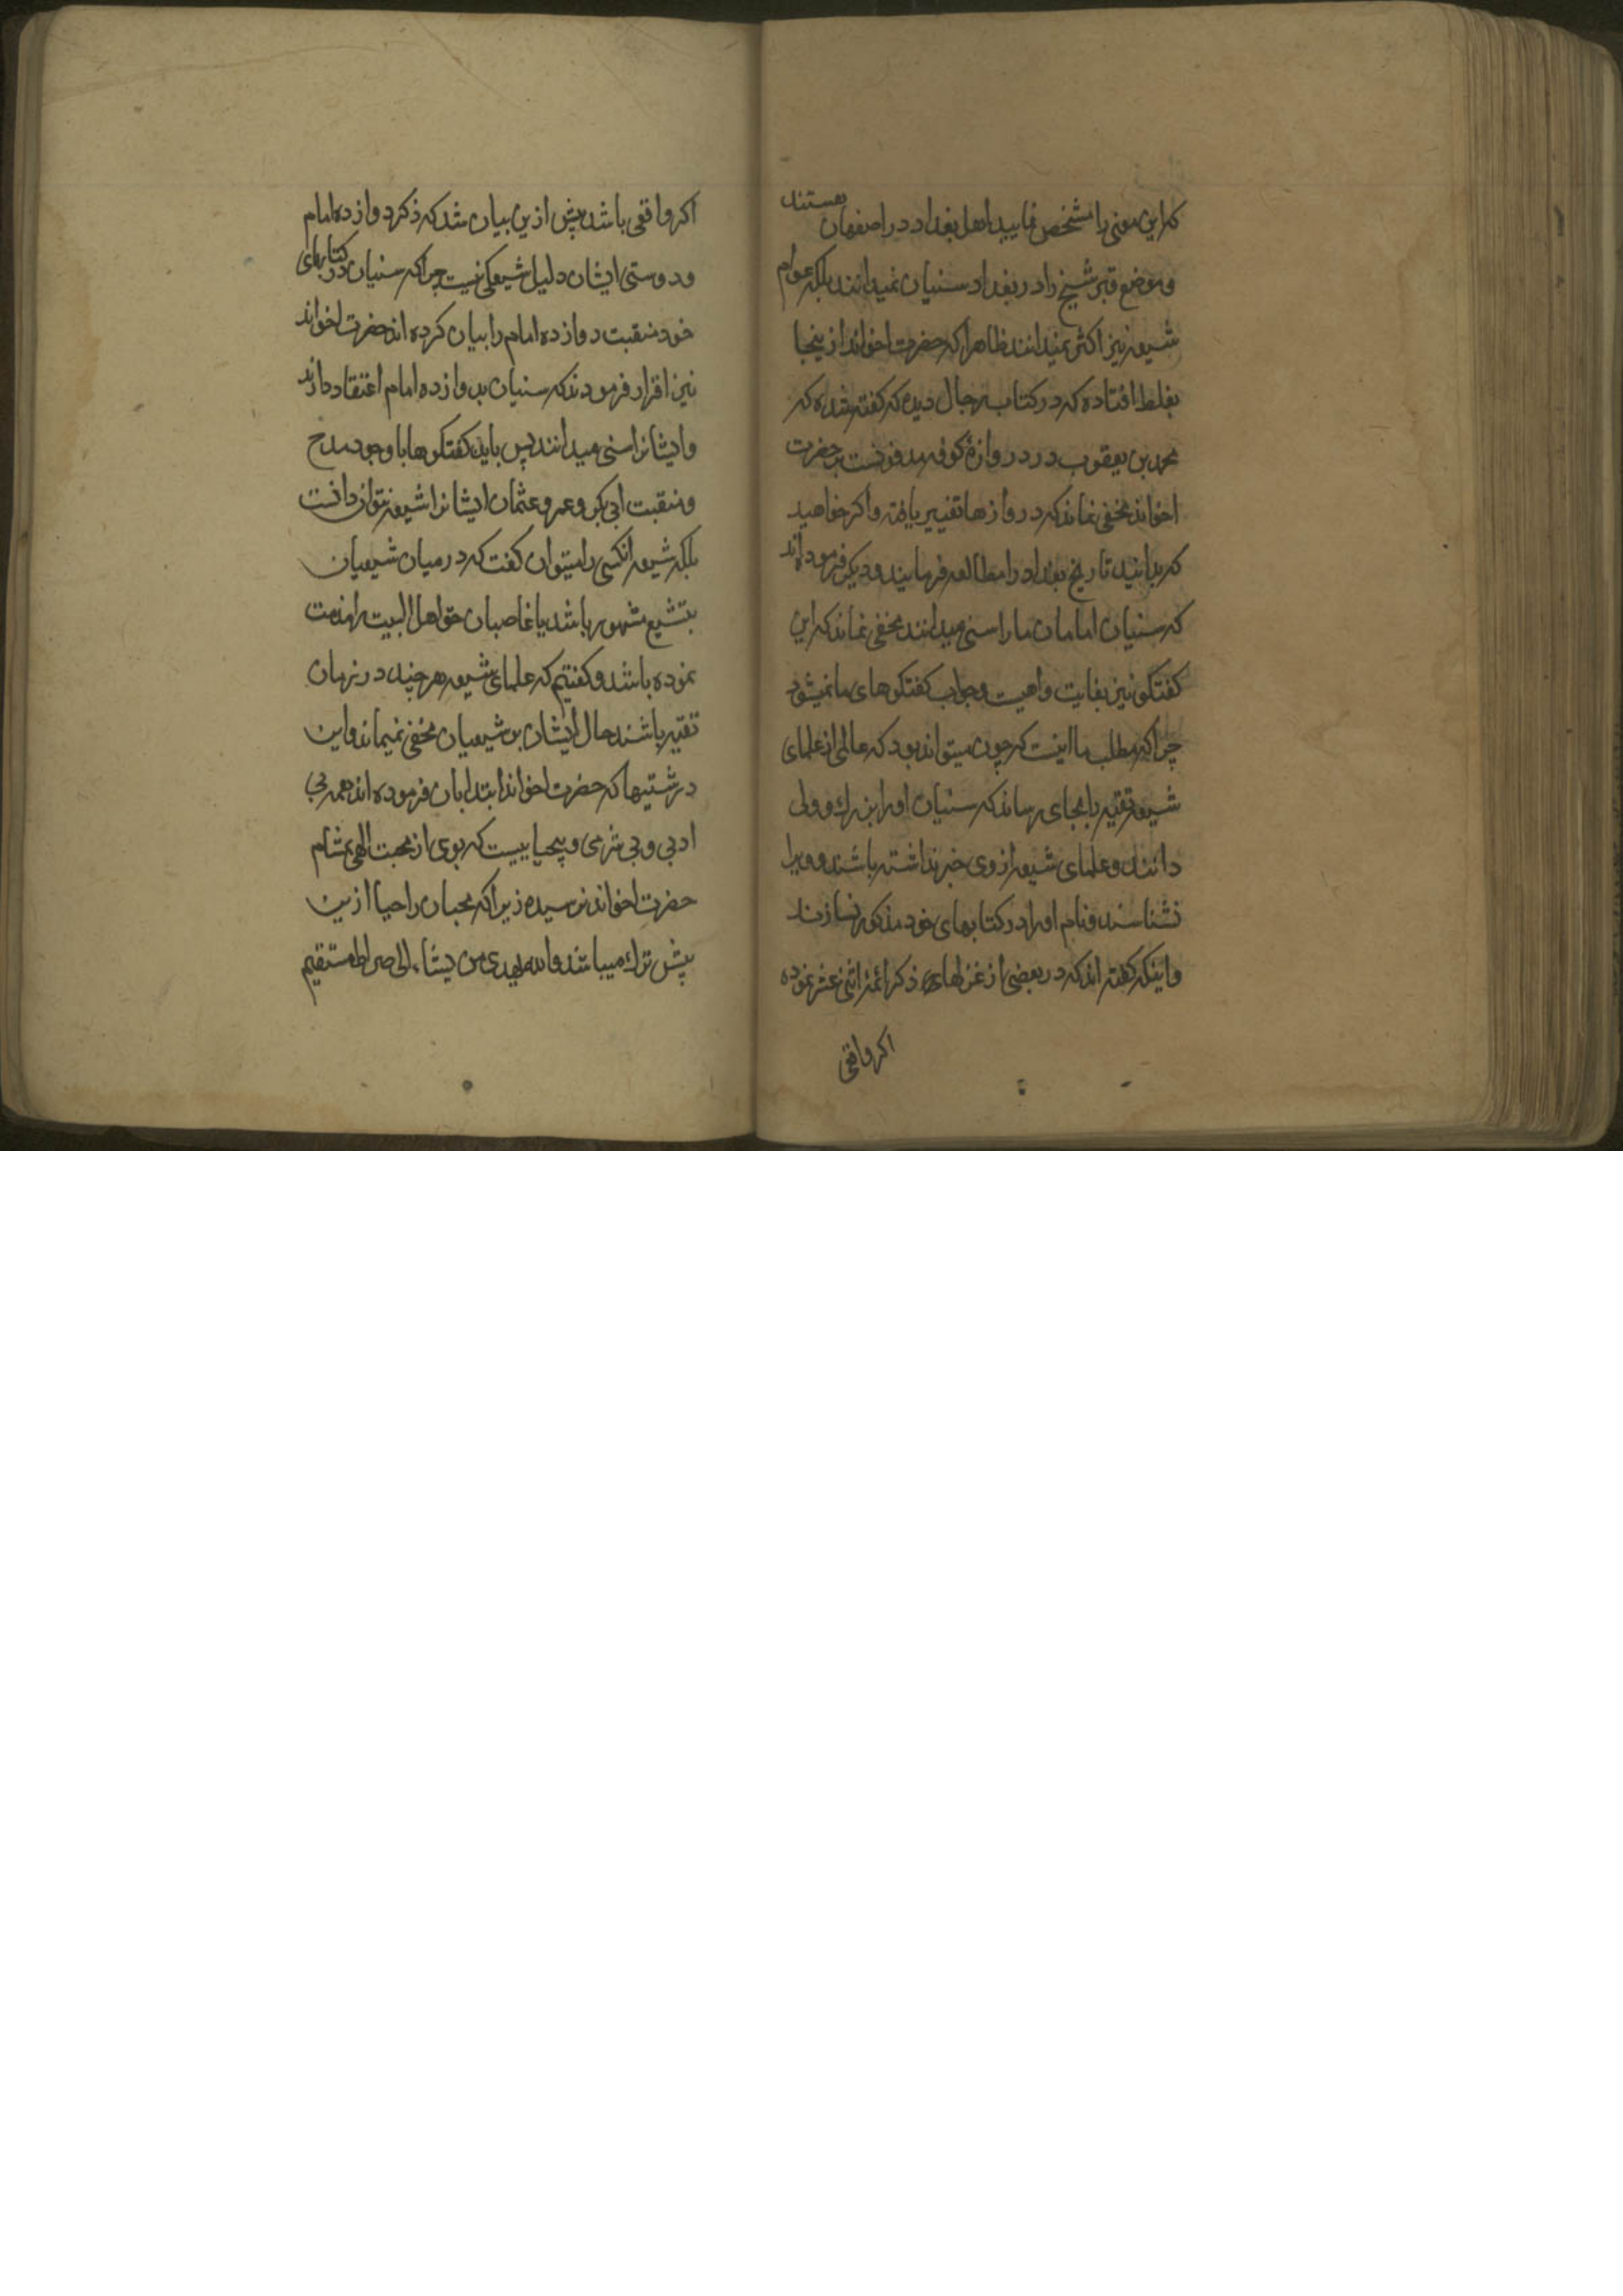 که این معنی را مشخص نمایید اهل بغداد در اصفهان هستند
و موضع قبر شیخ را در بغداد سنیان نمیدانند بلکه عوام
شیعه نیز اکثر نمیدانند ظاهرا که حضرت اخواند از ینجا
بغلط افتاده که در کتاب رجال دیده که کفته شده که
محمد بن یعقوب در دروازهٔ کوفه مدفونست بر حضرت
اخواند مخفی نماند که دروازها تغییر یافته و اکر خواهید
که بدانید تاریخ بغداد را مطالعه فرمایید و دیکر فرموده اند
که سنیان امامان ما را سنی میدانند مخفی نماند که این
کفتکو نیز بغایت واهیست و جواب کفتکوهای ما نمیشود
چراکه مطلب ما اینست که چون میتواند بود که عالمی از علمای
شیعه تقیه را بجای رساند که سنیان او را بزرك و ولی
دانند و علمای شیعه از وی خبر نداشته باشند و ویرا
نشناسند و نام او را در کتابهای خود مذکور نسازند
و اینکه کفته اند که در بعضی از غزلهای ذکر ائمهٔ اثنی عشر نموده
اکر واقعی
اکر واقعی باشد پیش ازین بیان شد که ذکر دوازده امام
و دوستی ایشان دلیل شیعکی نیست چراکه سنیان در کتابهای
خود منقبت دوازده امام را بیان کرده اند حضرت اخواند
نیز اقرار فرمودند که سنیان بدوازده امام اعتقاد دارند
و ایشانرا سنی میدانند پس باید کفتکوها با وجود مدح
و منقبت ابی بکر و عمر و عثمان ایشانرا شیعه نتوان دانست
بلکه شیعه انکسی را میتوان کفت که در میان شیعیان
بتشیع مشهور باشد یا غاصبان حق اهل البیت را مذمت
نموده باشد و کفتیم که علمای شیعه هر چند در زمان
تقیه باشند حال ایشان بر شیعیان مخفی نمیماند و این
درشتیها که حضرت اخواند ابتدا بان فرموده اند همه بی
ادبی و بی شرمی و بیحیاییست که بوی از محبت الهی بمشام
حضرت اخواند نرسیده زیراکه محبان را حیا ازین
بیش ترك میباشد والله یهدی من یشاء الی صراط مستقیم